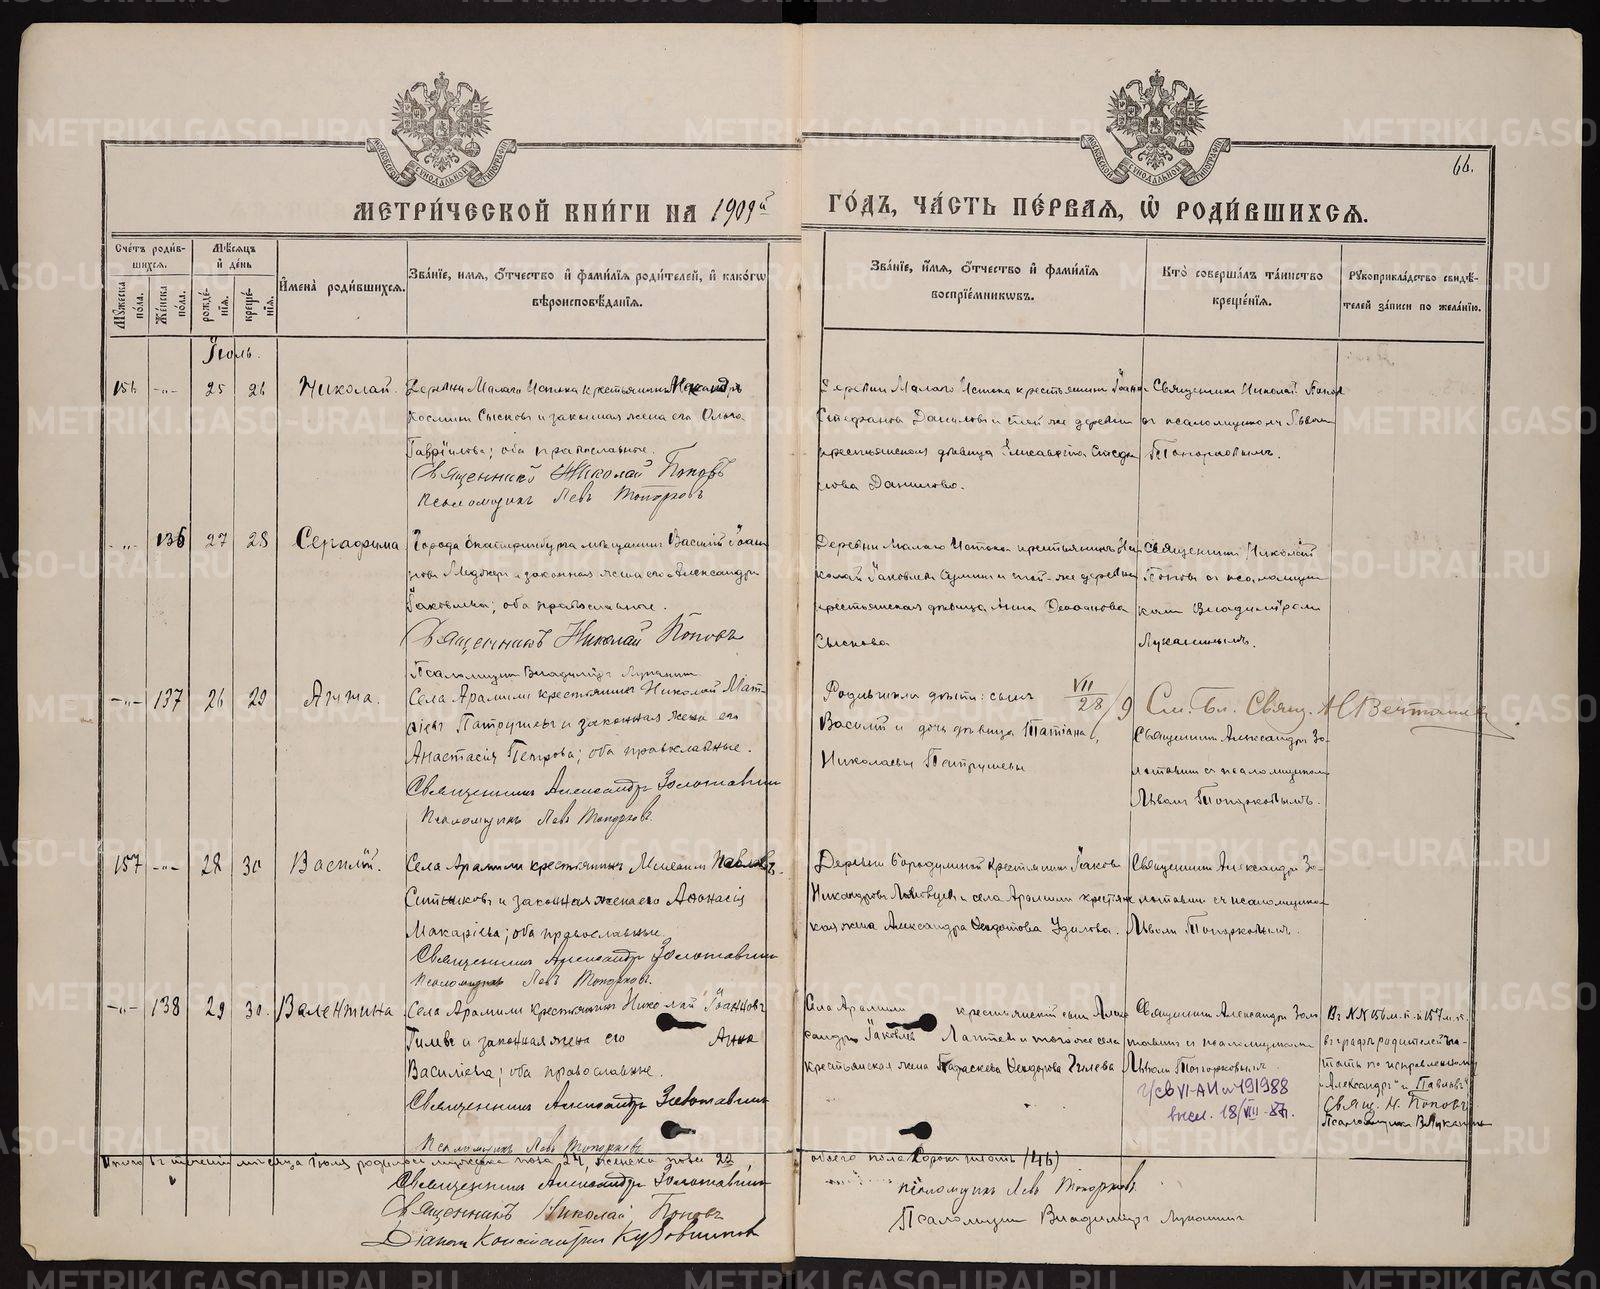 METRIKI.GASO-URAL.RU
66.
МОСКОВСКОЙ СУНОДАЛЬНОЙ ТИПОГРАФІИ
МОСКОВСКОЙ СУНОДАЛЬНОЙ ТИПОГРАФІИ
МЕТРИ́ЧЕСКОЙ КНИ́ГИ НА 1909й ГО́ДЪ, ЧА́СТЬ ПЕ́РВАѦ, Ѡ҆ РОДИ́ВШИХСѦ.
Сче́тъ роди́вшихсѧ.
Мꙋ́жеска по́ла.
Же́нска по́ла.
Мѣ́сѧцъ и҆ де́нь
рожде́нїѧ.
креще́нїѧ.
И҆мена̀ роди́вшихсѧ.
Зва́нїе, и҆мѧ, ѻ҆́тчество и҆ фами́лїѧ роди́телей, и҆ како́гѡ вѣроисповѣ́данїѧ.
Зва́нїе, и҆́мѧ, ѻ҆́тчество и҆ фами́лїѧ воспрїе́мникѡвъ.
Кто̀ соверша́лъ та́инство креще́нїѧ.
Рꙋкоприкла́дство свидѣ́телей за́писи по жела́нїю.
Іюль.
156 -"- 25 26 Николай.
Деревни Малаго Истока крестьянинъ Александръ
Косминъ Сысковъ и законная жена его Ольга
Гавріилова; оба православные.
Священникъ Николай Поповъ
Псаломщикъ Левъ Топорковъ
Деревни Малаго Истока крестьянинъ Іоаннъ
Стефановъ Даниловъ и той же деревни
крестьянская дѣвица Елисавета
Данилова.
Священникъ Николай Поповъ
съ псаломщикомъ Львомъ
Топорковымъ.
-"- 136 27 28 Серафима
Города Екатеринбурга мѣщанинъ Василій Іоанновъ
и законная жена его Александра
Іаковлева; оба православные.
Священникъ Николай Поповъ
Псаломщикъ Владиміръ Лукашинъ
Деревни Малаго Истока крестьянинъ Николай
Іаковлевъ и той-же деревни
крестьянская дѣвица Анна
Сыскова
Священникъ Николай
Поповъ съ псаломщикомъ
Владиміромъ
Лукашинымъ.
-"- 137 26 29 Анна.
Села Арамили крестьянинъ Николай Матѳіевъ
Патрушевъ и законная жена его
Анастасія Петрова; оба православные.
Священникъ Александръ Золотавинъ
Псаломщикъ Левъ Топорковъ.
Родившіяся дѣти: сынъ
Василій и дочь дѣвица Татіана
Николаевы Патрушевы
VII
28/9
Священникъ Александръ Золотавинъ
съ псаломщикомъ
Львомъ Топорковымъ.
157 -"- 28 30 Василій.
Села Арамили крестьянинъ Павловъ
Ситниковъ и законная жена его Аѳанасія
Макаріева; оба православные.
Священникъ Александръ Золотавинъ
Псаломщикъ Левъ Топорковъ.
Деревни Бородулиной крестьянинъ Іаковъ
Никандровъ и села Арамили крестьянская
жена Александра Ѳедотова Удилова.
Священникъ Александръ Золотавинъ
съ псаломщикомъ
Львомъ Топорковымъ.
-"- 138 29 30. Валентина
Села Арамили крестьянинъ Николай Іоанновъ
Гилевъ и законная жена его Анна
Василіева; оба православные.
Священникъ Александръ Золотавинъ
Псаломщикъ Левъ Топорковъ
Села Арамили крестьянскій сынъ Александръ
Іаковлевъ Лаптевъ и того же села
крестьянская жена Параскева Ѳеодорова Гилева
Священникъ Александръ Золотавинъ
съ псаломщикомъ
Львомъ Топорковымъ.
191988
18/VIII-87г.
Въ №№ 156 м.п. и 157 м.п.
въ графѣ родителей читать
по исправленному
"Александръ" и "Павловъ"
Свящ. Н. Поповъ
Псаломщикъ В. Лукашинъ
Итого въ теченіи мѣсяца Іюля родилось мужеска пола 24, женска пола 22, обоего пола сорокъ шесть (46)
Священникъ Александръ Золотавинъ
Священникъ Николай Поповъ
Діаконъ Константинъ Кубовшиковъ
Псаломщикъ Левъ Топорковъ.
Псаломщикъ Владиміръ Лукашинъ